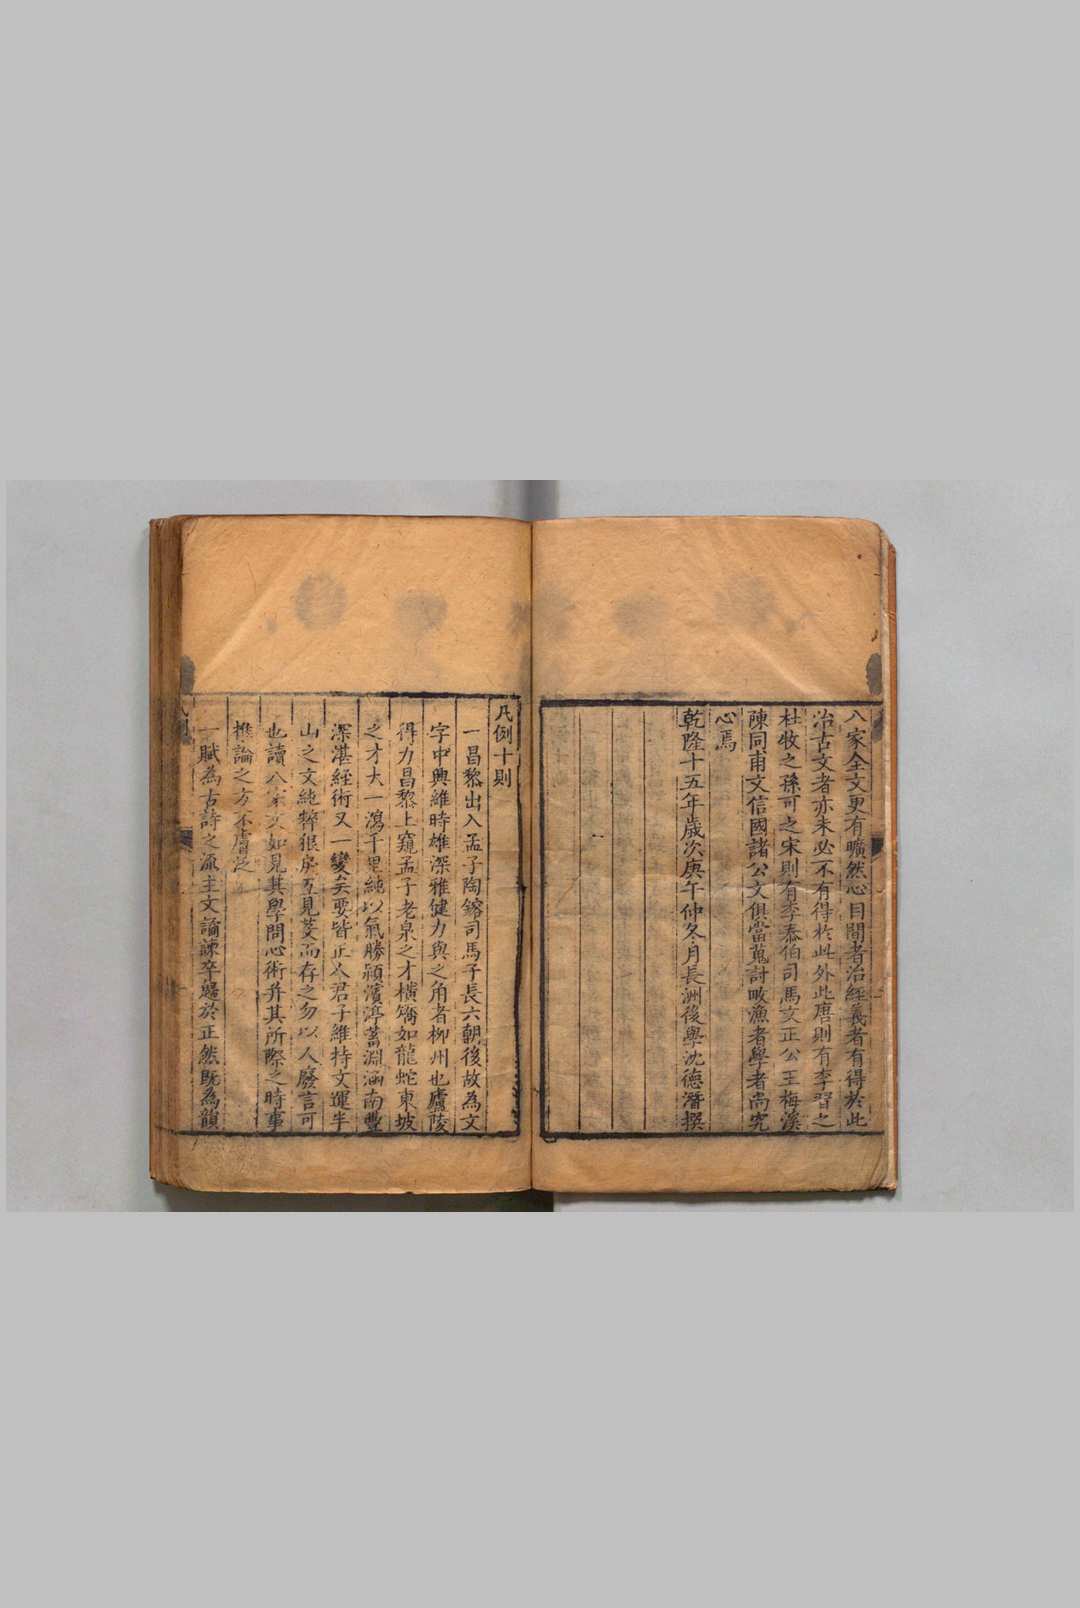 八家全文更有曠然心目間者治經義者有得於此
治古文者亦未必不有得於此外此唐則有李習之
杜牧之孫可之宋則有李泰伯司馬文正公王梅溪
陳同甫文信國諸公文俱當蒐討畋漁者學者尚究
心焉
乾隆十五年歲次庚午仲冬月長洲後學沈德潛撰
凡例十則
一昌黎出入孟子陶鎔司馬子長六朝後故為文
字中興維時雄深雅健力與之角者柳州也廬陵
得力昌黎上窺孟子老泉之才橫矯如龍蛇東坡
之才大一瀉千里純以氣勝潁濱渟蓄淵涵南豐
深湛經術又一變矣要皆正人君子維持文運半
山之文純粹狠戾互見芟而存之勿以人廢言可
也讀八家文如見其學問心術并其所際之時事
推論之方不膚泛
一賦為古詩之流主文譎諫卒歸於正然既為韻